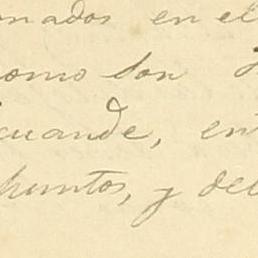 onados en el
como son
cuande, en
puntos, y del